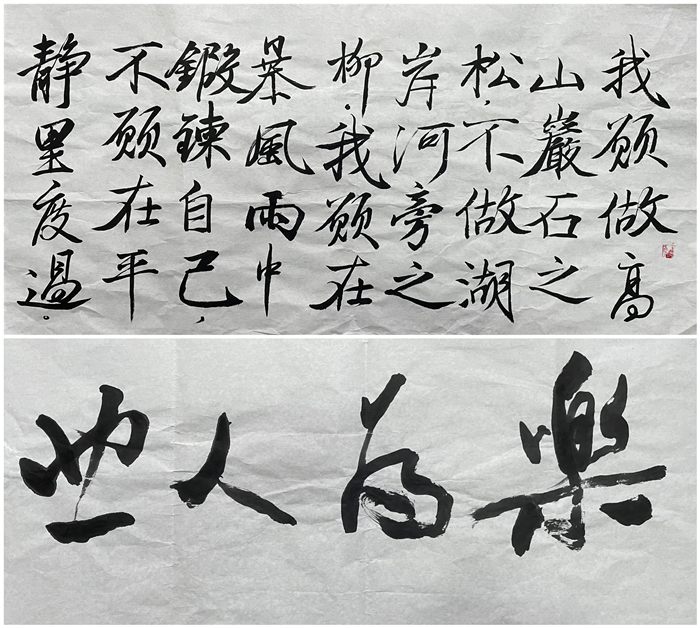 我願做高
山巖石之
松,不做湖
岸河旁之
柳.我願在
暴風雨中
鍛鍊自己,
不願在平
静里度過。
樂為人